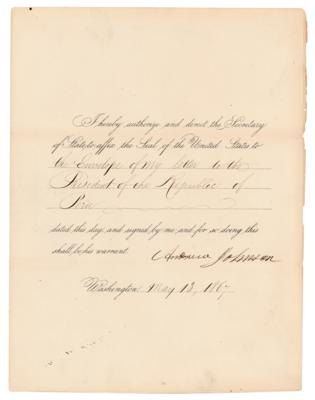 I hereby authorize and direct the Secretary
of State to affix the Seal of the United States to
the Envelope of my letter to the
President of the Republic of
Peru
dated this day, and signed by me, and for so doing this
shall be his warrant.
Andrew Johnson
Washington, May 13, 1867